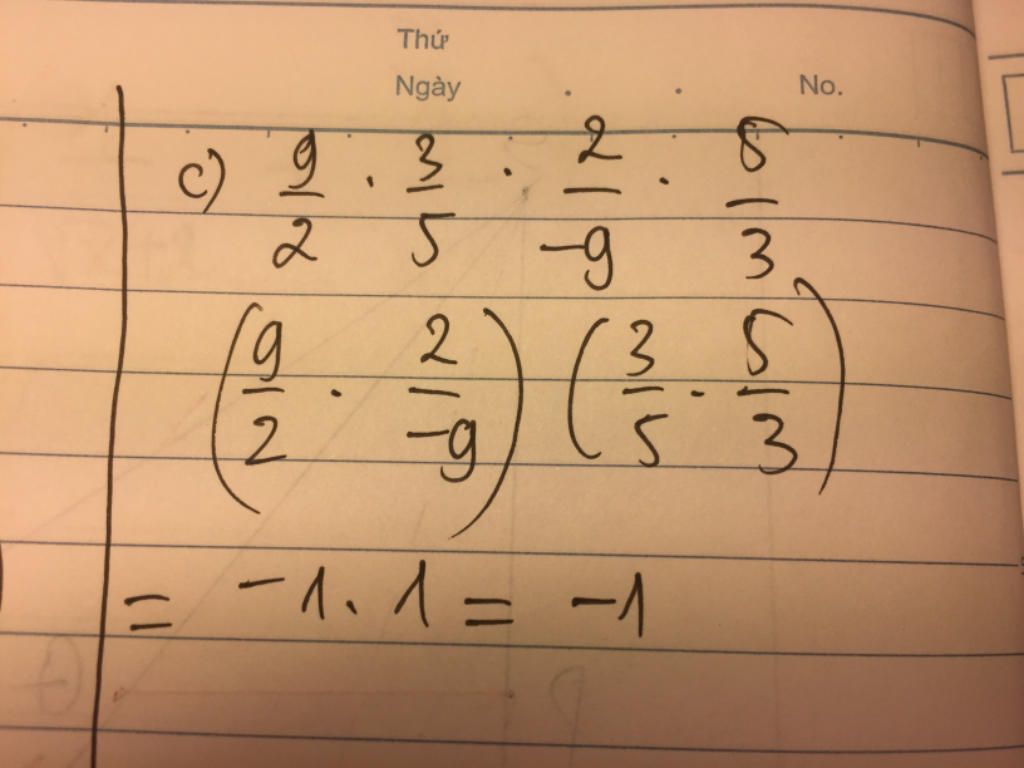 Thứ
Ngày . . No.
c) 9/2 . 3/5 . 2/-9 . 5/3
(9/2 . 2/-9) (3/5 . 5/3)
= -1 . 1 = -1